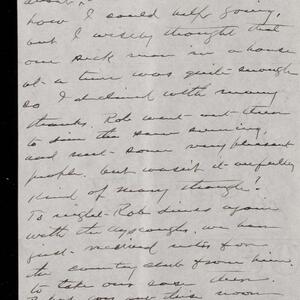 about,
how I could help going,
but I wisely thought that
one sick man in a house
at a time was quite enough
so I declined with many
thanks. Rob went out then
to dine the same evening,
and met some very pleasant
people. but wasn't it awfully
kind of many though!
To night Rob dines again
with the Ayscoughs. we have
just received notes from
the country club from him.
to take our ease there.